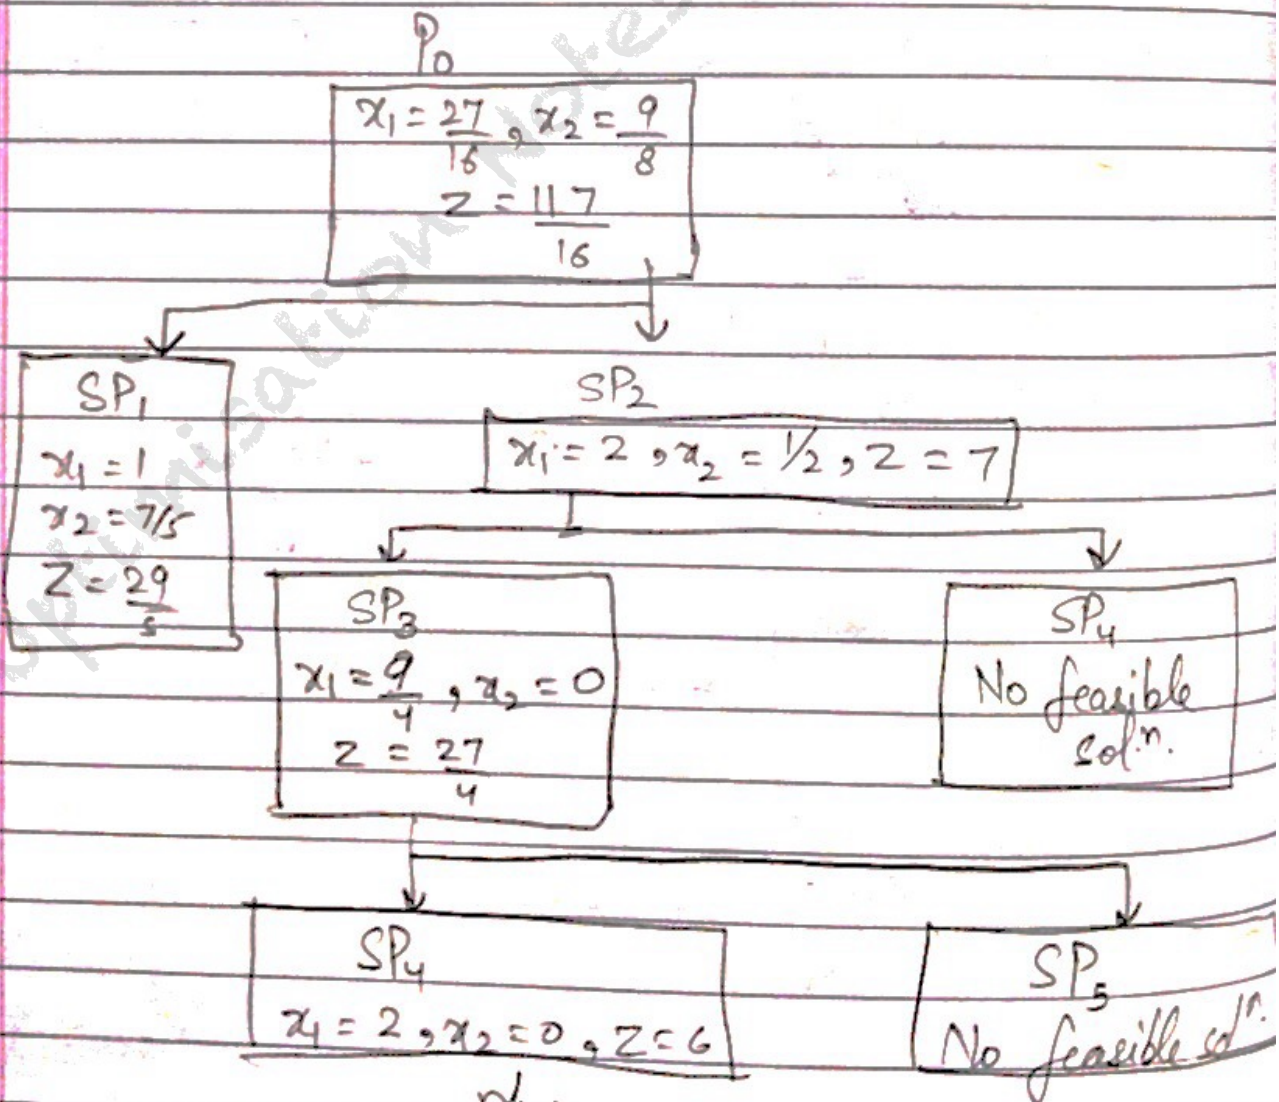 P0
x1 = 27/16 , x2 = 9/8
Z = 117/16
SP1
x1 = 1
x2 = 7/5
Z = 29/5
SP2
x1 = 2 , x2 = 1/2 , Z = 7
SP3
x1 = 9/4 , x2 = 0
Z = 27/4
SP4
No feasible
sol.n.
SP4
x1 = 2 , x2 = 0 , Z = 6
SP5
No feasible soln.
optimisation Notes